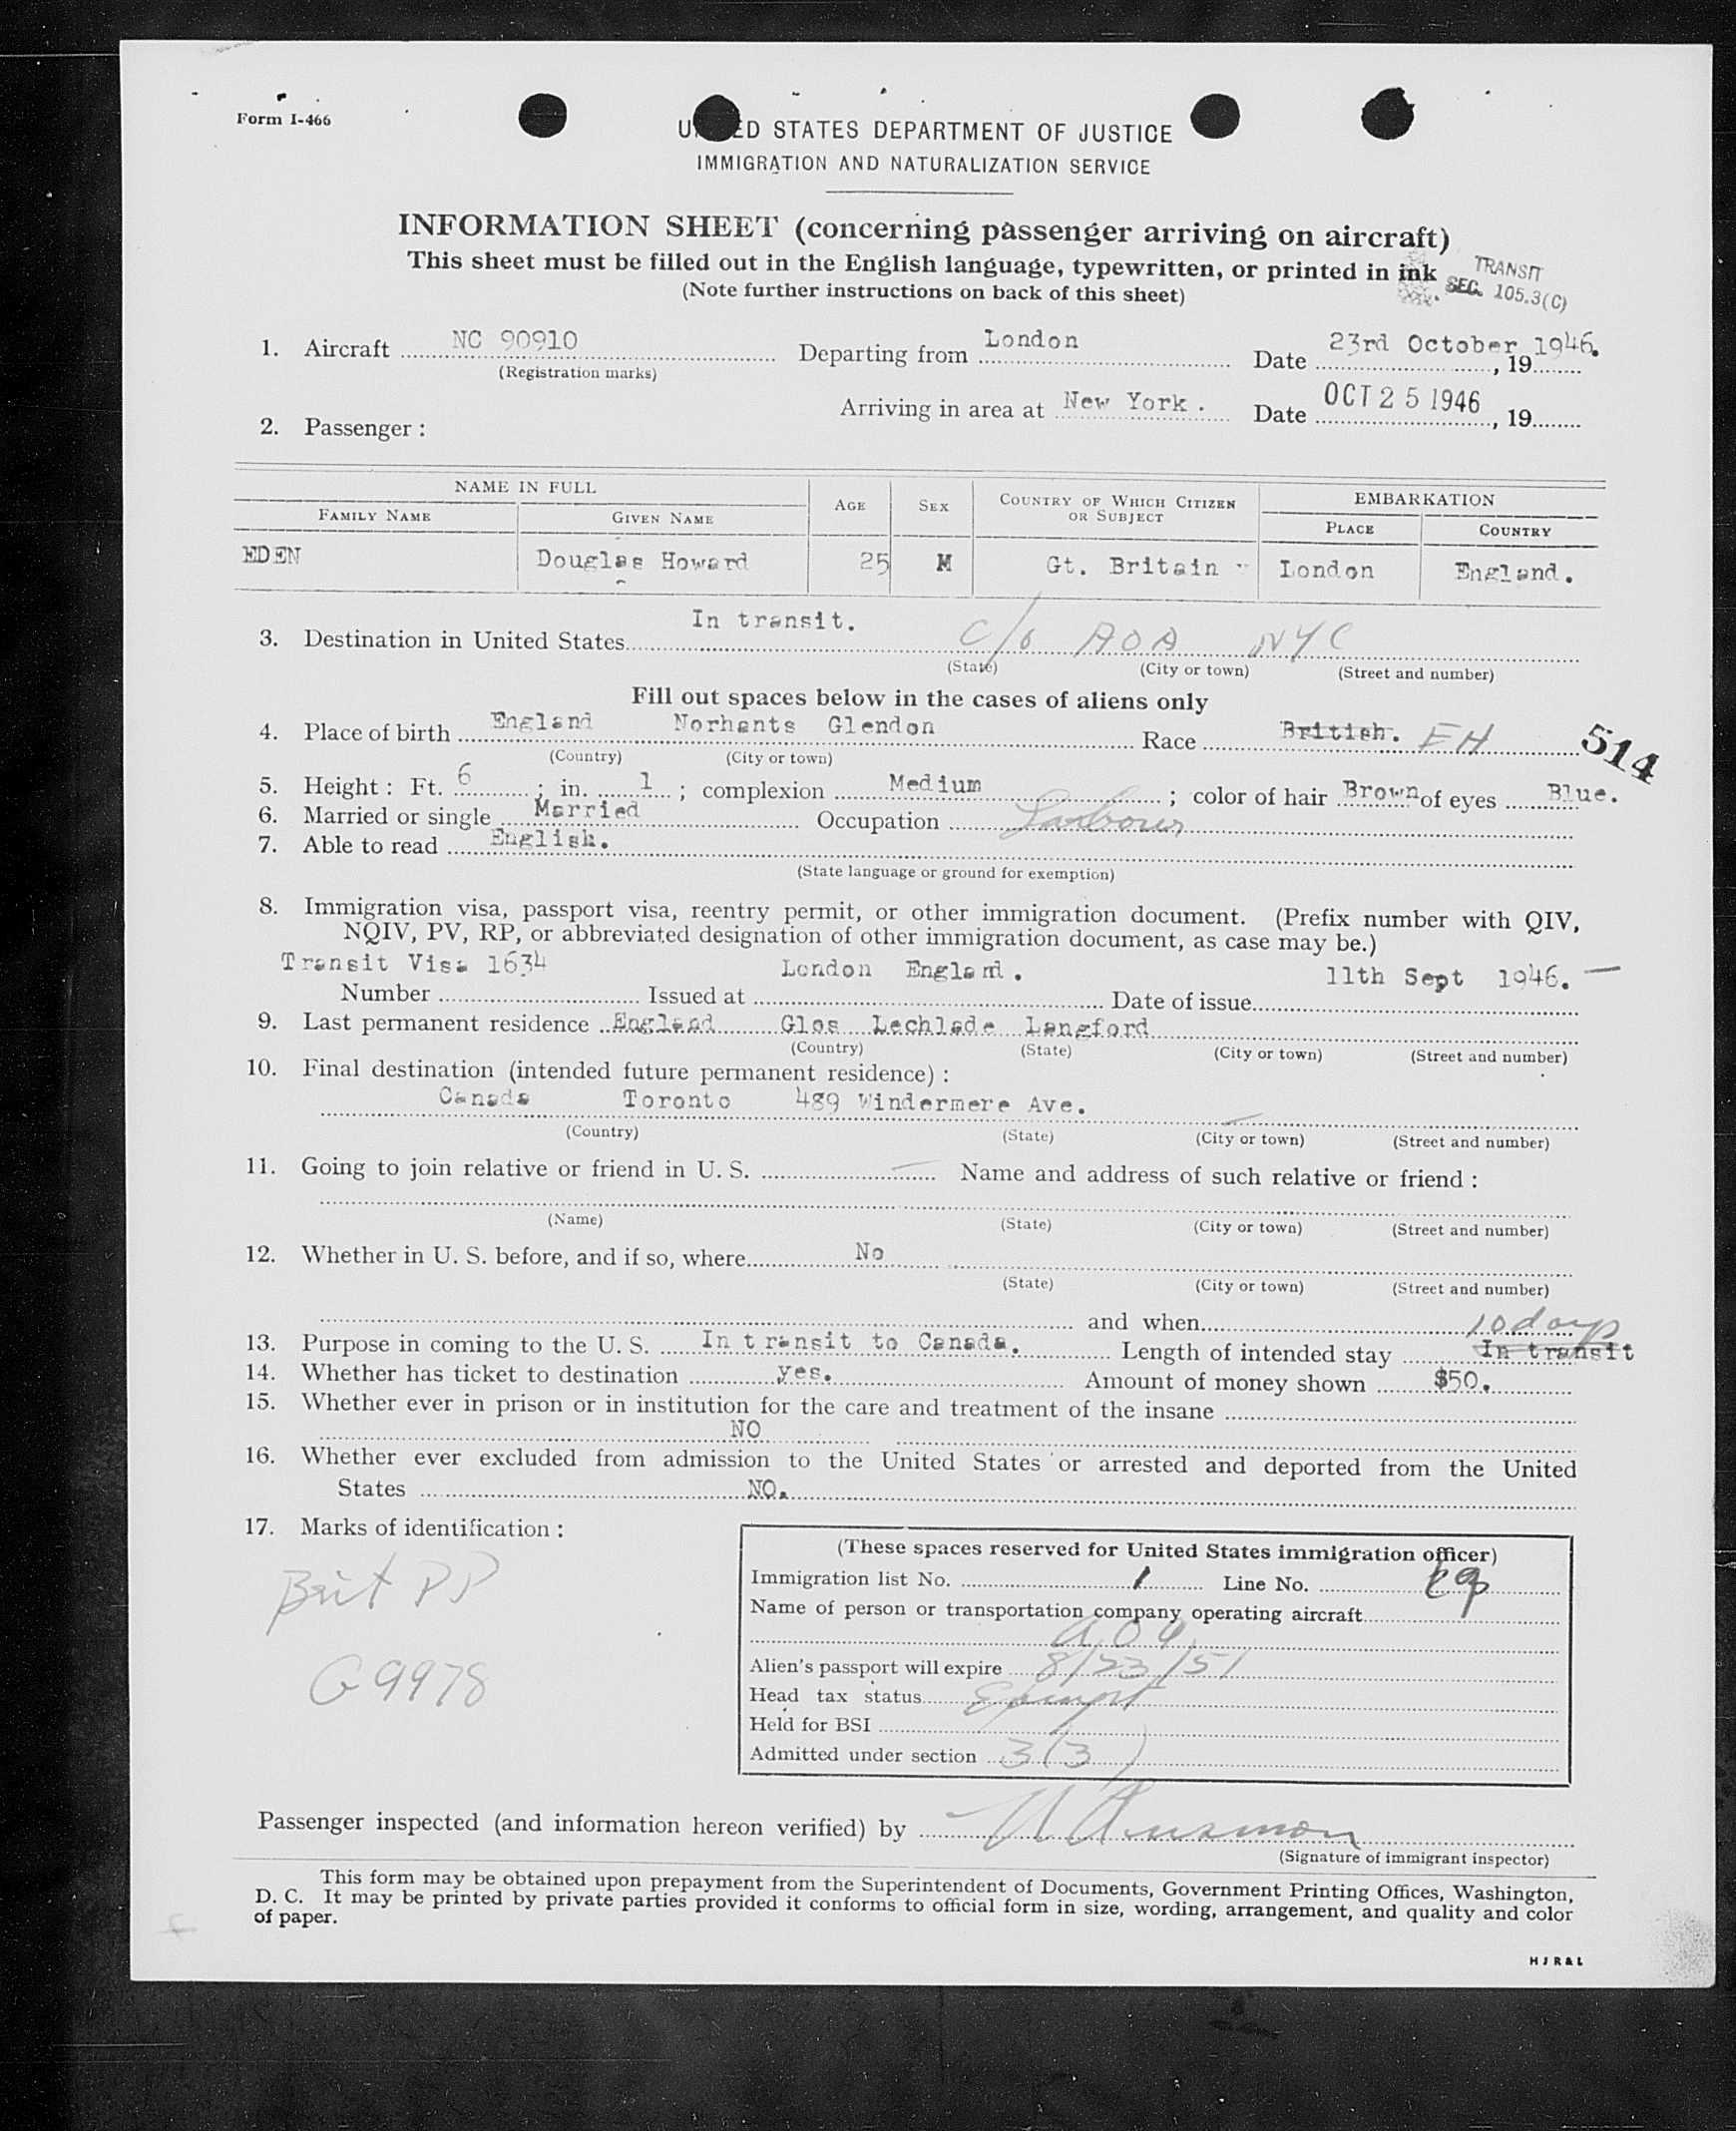 Form I-466
UNITED STATES DEPARTMENT OF JUSTICE
IMMIGRATION AND NATURALIZATION SERVICE
INFORMATION SHEET (concerning passenger arriving on aircraft)
This sheet must be filled out in the English language, typewritten, or printed in ink
(Note further instructions on back of this sheet)
TRANSIT
SEC. 105.3(C)
1. Aircraft NC 90910 Departing from London Date 23rd October 1946., 19
(Registration marks)
Arriving in area at New York. Date OCT 25 1946, 19
2. Passenger:
NAME IN FULL AGE SEX COUNTRY OF WHICH CITIZEN OR SUBJECT EMBARKATION
FAMILY NAME GIVEN NAME PLACE COUNTRY
EDEN Douglas Howard 25 M Gt. Britain London England.
3. Destination in United States In transit. C/o AOA NYC
(State) (City or town) (Street and number)
Fill out spaces below in the cases of aliens only
4. Place of birth England Norhants Glendon Race British. EH
(Country) (City or town)
514
5. Height: Ft. 6; in. 1; complexion Medium; color of hair Brown of eyes Blue.
6. Married or single Married Occupation
7. Able to read English.
(State language or ground for exemption)
8. Immigration visa, passport visa, reentry permit, or other immigration document. (Prefix number with QIV,
NQIV, PV, RP, or abbreviated designation of other immigration document, as case may be.)
Transit Visa 1634 London England. 11th Sept 1946. —
Number Issued at Date of issue
9. Last permanent residence England Glos Lechlade Langford
(Country) (State) (City or town) (Street and number)
10. Final destination (intended future permanent residence):
Canada Toronto 489 Windermere Ave.
(Country) (State) (City or town) (Street and number)
11. Going to join relative or friend in U. S. — Name and address of such relative or friend:
(Name) (State) (City or town) (Street and number)
12. Whether in U. S. before, and if so, where No
(State) (City or town) (Street and number)
and when
10 days
13. Purpose in coming to the U. S. In transit to Canada. Length of intended stay In transit
14. Whether has ticket to destination yes. Amount of money shown $50.
15. Whether ever in prison or in institution for the care and treatment of the insane
NO
16. Whether ever excluded from admission to the United States or arrested and deported from the United
States NO.
17. Marks of identification:
Brit PP
G9978
(These spaces reserved for United States immigration officer)
Immigration list No. 1 Line No.
Name of person or transportation company operating aircraft
AOA
Alien's passport will expire 8/23/51
Head tax status Exempt
Held for BSI
Admitted under section 3(3)
Passenger inspected (and information hereon verified) by
(Signature of immigrant inspector)
This form may be obtained upon prepayment from the Superintendent of Documents, Government Printing Offices, Washington,
D. C. It may be printed by private parties provided it conforms to official form in size, wording, arrangement, and quality and color
of paper.
HJR&L